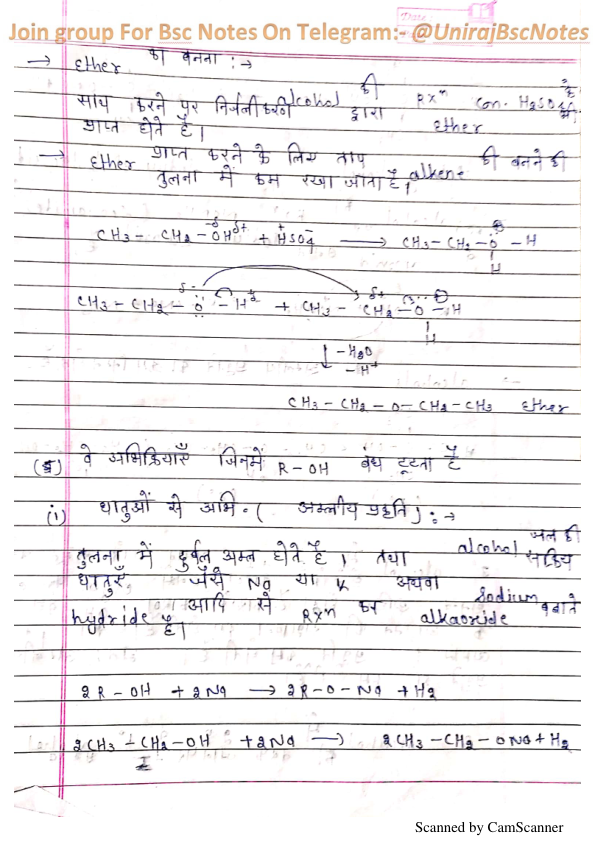 Date
Join group For Bsc Notes On Telegram:- @UnirajBscNotes
→ Ether का बनना :→
alcohol की Rxⁿ con. H₂SO₄ के
साथ करने पर निर्जलीकरण द्वारा Ether
प्राप्त होते है।
→ Ether प्राप्त करने के लिए ताप alkene की बनने की
तुलना में कम रखा जाता है।
CH₃ – CH₂ – OH + HSO₄ ⟶ CH₃–CH₂–O–H
H
CH₃ – CH₂ – O – H + CH₃ – CH₂ – O – H
H
↓ –H₂O
–H⁺
CH₃ – CH₂ – O – CH₂ – CH₃ Ether
वे अभिक्रियाएँ जिनमें R – OH बंध टूटता है
(i) धातुओं से अभि. ( अम्लीय प्रकृति ) :→
alcohol जल की
तुलना में दुर्बल अम्ल होते है। तथा सक्रिय
धातुएँ जैसे Na या K अथवा Sodium
hydride आदि से Rxⁿ कर alkaoxide बनाते
है।
2R – OH + 2Na ⟶ 2R – O – Na + H₂
2CH₃ – CH₂ – OH + 2Na ⟶ 2CH₃ – CH₂ – ONa + H₂
Scanned by CamScanner